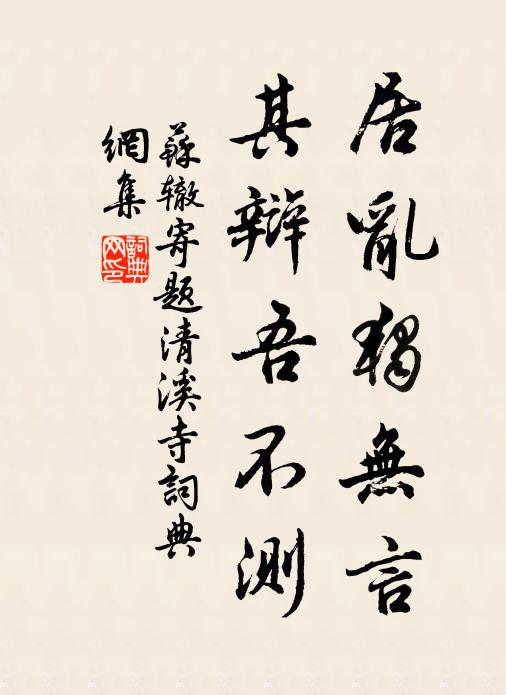 居亂獨無言
其辯吾不測
蘇辙寄题清溪寺詞典
網集
詞典
网印